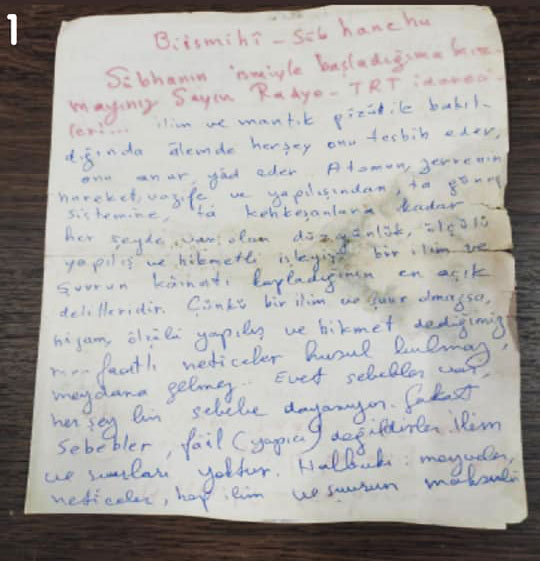 1
Biismihî - Süb hanehu
Sübhanın ismiyle başladığıma kız-
mayınız Sayın Radyo - TRT idareci-
leri... ilim ve mantık gözüyle bakıl-
dığında âlemde herşey onu tesbih eder,
onu anar, yâd eder. Atomun, zerrenin
hareket, vazife ve yapılışından, ta güneş
sistemine, tâ kehkeşanlara kadar
her şeyde var olan düzgünlük, ölçülü
yapılış ve hikmetli işleyiş bir ilim ve
şuurun kâinatı kapladığının en açık
delilleridir. Çünkü bir ilim ve şuur olmazsa,
nizam, ölçülü yapılış ve hikmet dediğimiz
faatlı neticeler husul bulmaz,
meydana gelmez. Evet sebebler var,
her şey bir sebebe dayanıyor. Fakat
Sebebler, fail (yapıcı) değildirler. İlim
ve şuurları yoktur. Halbuki: meyveler,
neticeler, hep ilim ve şuurun mahsulü